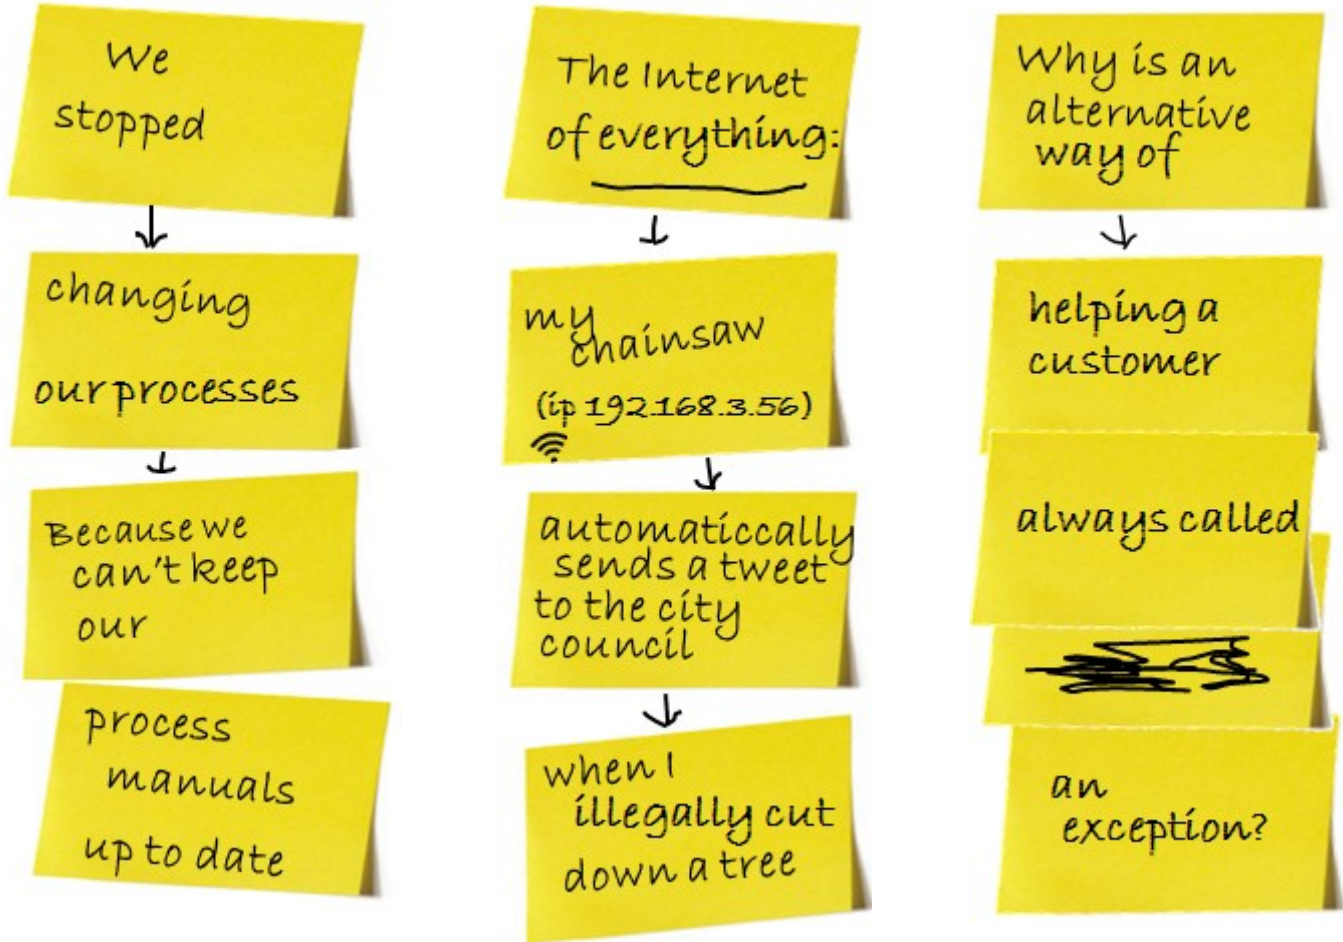 We
stopped
changing
our processes
Because we
can't keep
our
process
manuals
up to date
The Internet
of everything:
my
chainsaw
(ip 192.168.3.56)
automaticcally
sends a tweet
to the city
council
when I
illegally cut
down a tree
Why is an
alternative
way of
helping a
customer
always called
an
exception?